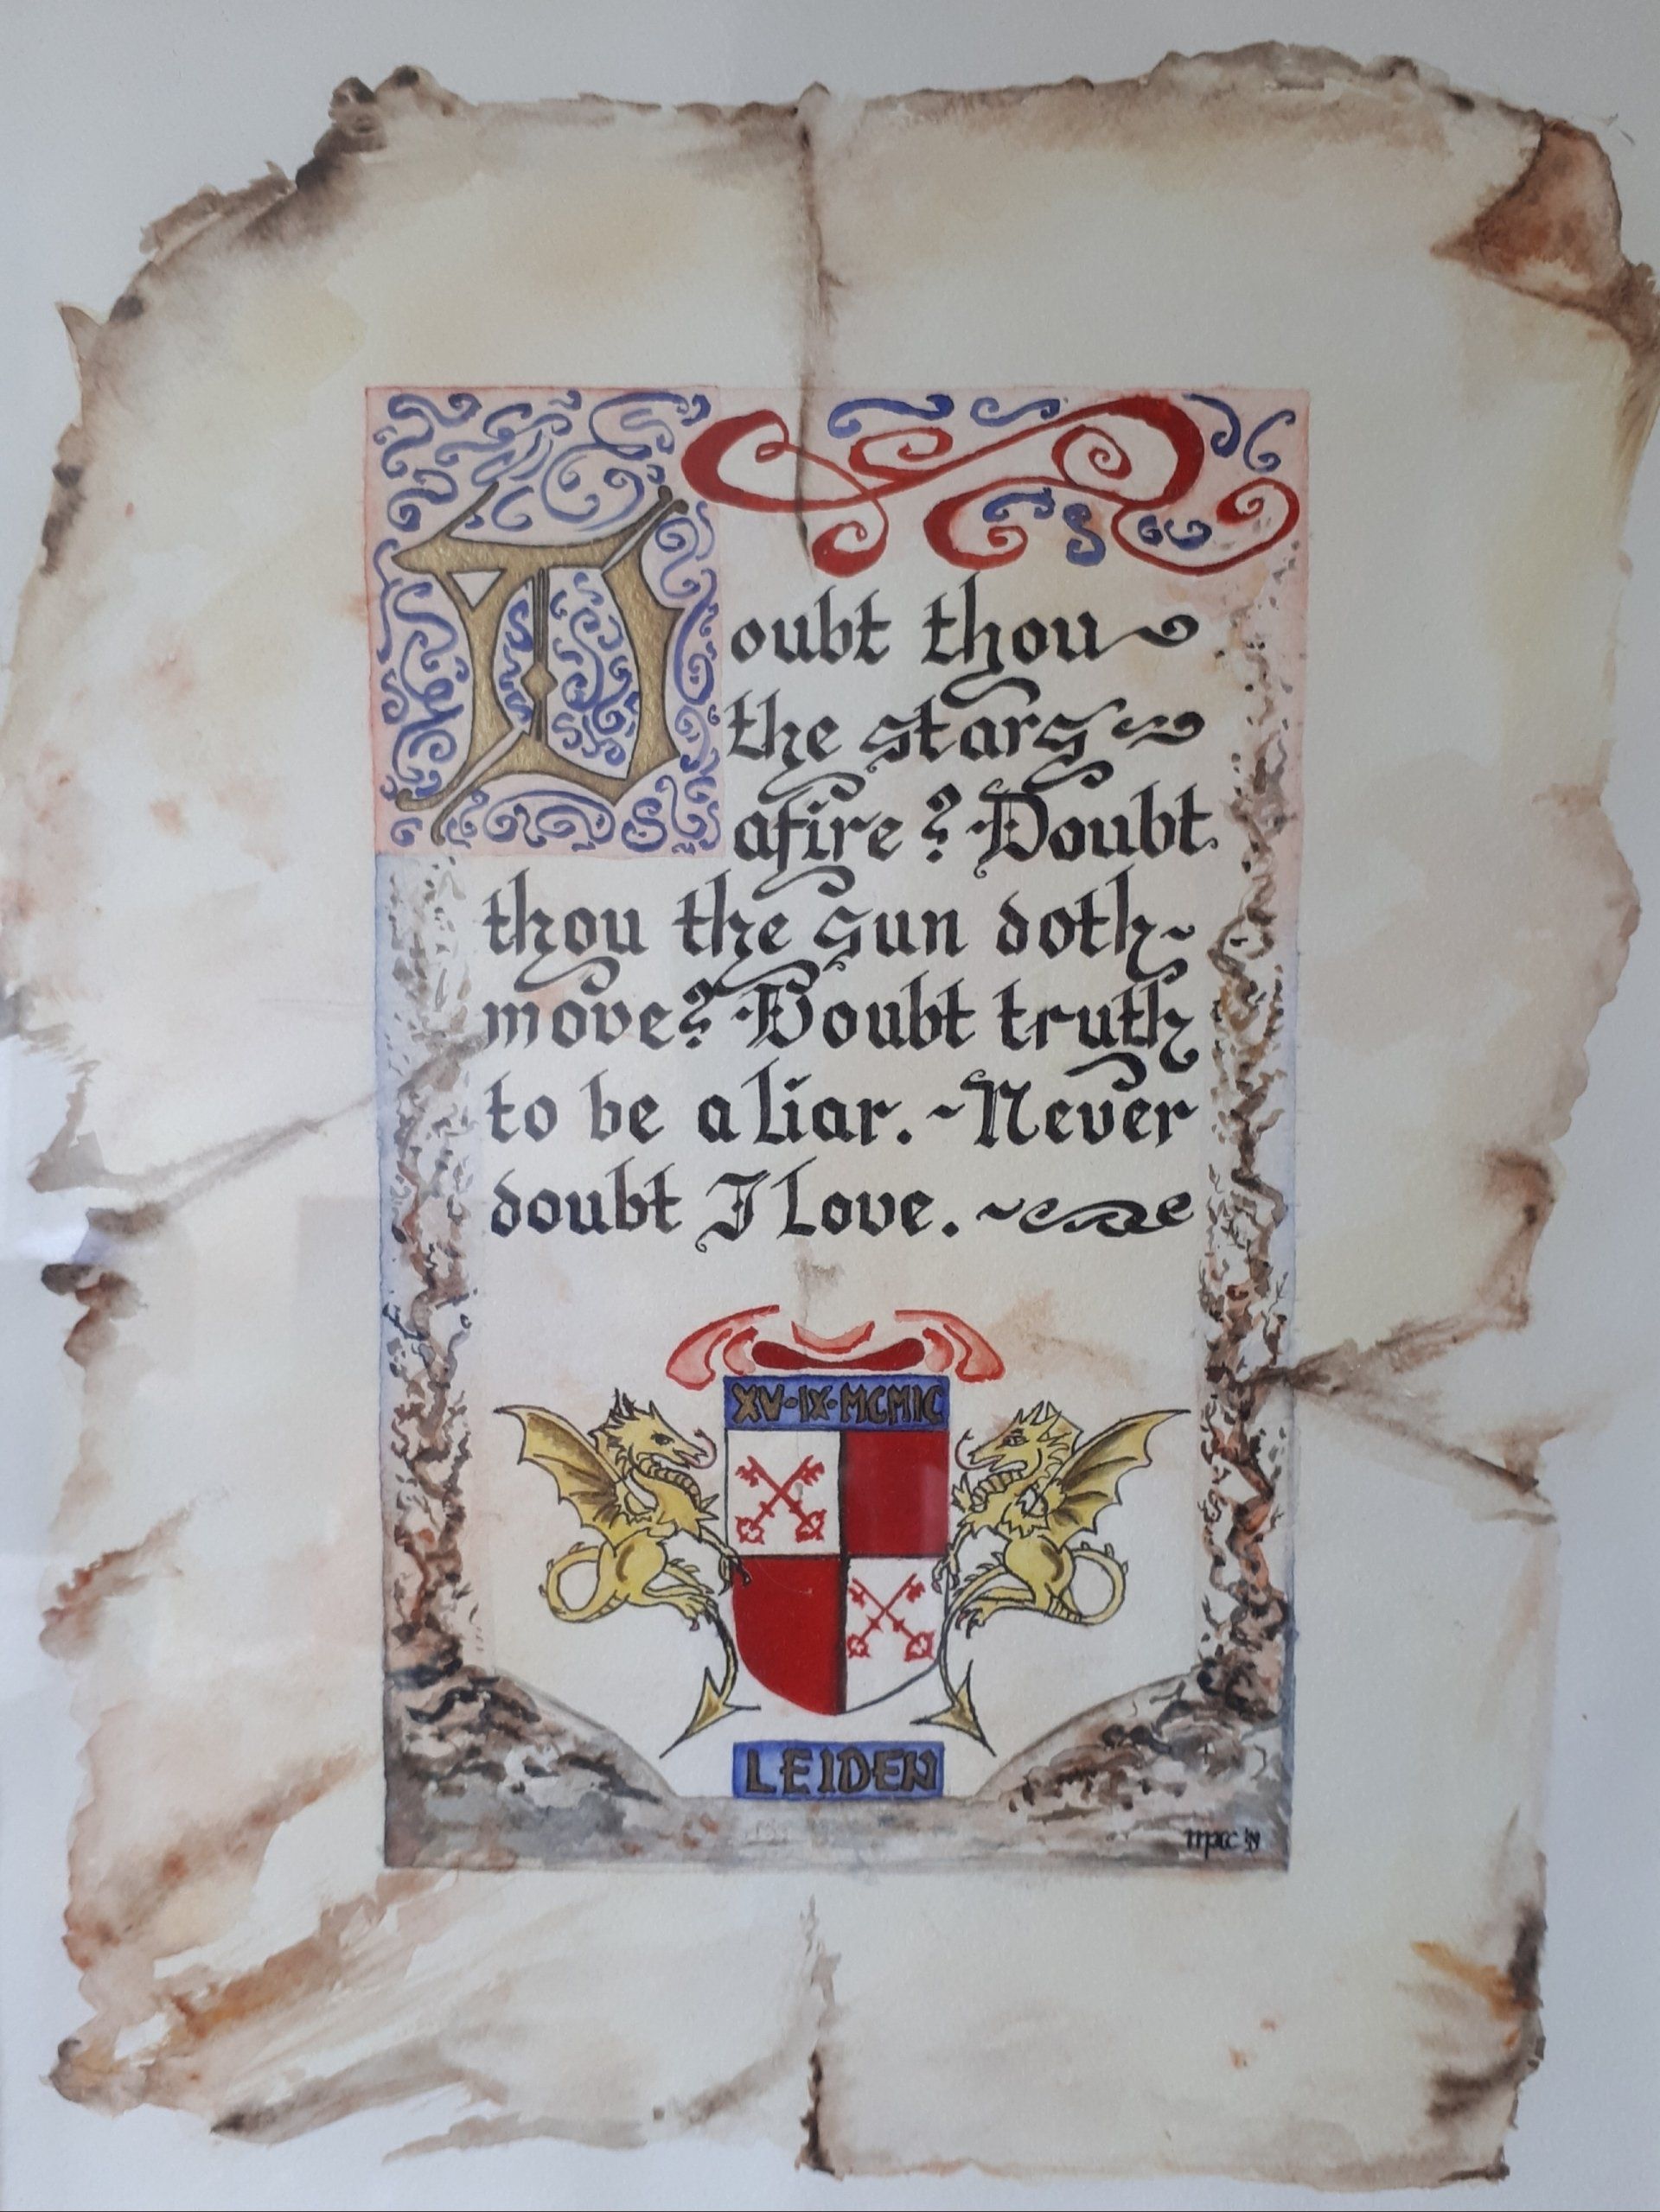 Doubt thou
the stars
afire? Doubt
thou the sun doth
move? Doubt truth
to be a liar. ~ Never
doubt I love.
XV·IX·MCMIC
LEIDEN